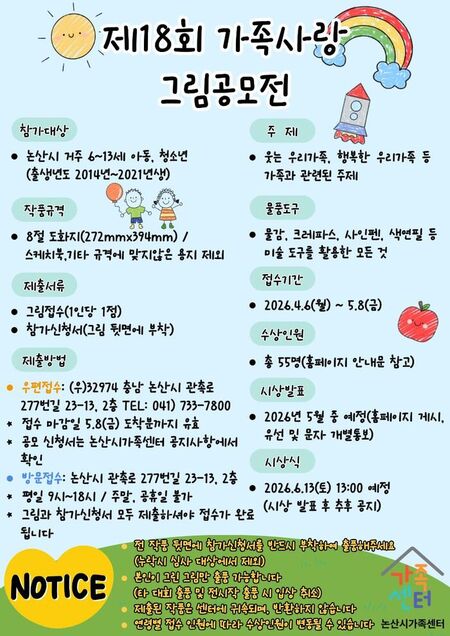 제18회 가족사랑
그림공모전
참가대상
• 논산시 거주 6~13세 아동, 청소년
(출생년도 2014년~2021년생)
작품규격
• 8절 도화지(272mmx394mm) /
스케치북,기타 규격에 맞지않은 용지 제외
제출서류
• 그림접수(1인당 1점)
• 참가신청서(그림 뒷면에 부착)
제출방법
• 우편접수: (우)32974 충남 논산시 관촉로
277번길 23-13, 2층 TEL: 041) 733-7800
* 접수 마감일 5.8(금) 도착분까지 유효
* 공모 신청서는 논산시가족센터 공지사항에서
확인
• 방문접수: 논산시 관촉로 277번길 23-13, 2층
* 평일 9시~18시 / 주말, 공휴일 불가
* 그림과 참가신청서 모두 제출하셔야 접수가 완료
됩니다
주 제
• 웃는 우리가족, 행복한 우리가족 등
가족과 관련된 주제
물품도구
• 물감, 크레파스, 사인펜, 색연필 등
미술 도구를 활용한 모든 것
접수기간
• 2026.4.6(월) ~ 5.8(금)
수상인원
• 총 55명(홈페이지 안내문 참고)
시상발표
• 2026년 5월 중 예정(홈페이지 게시,
유선 및 문자 개별통보)
시상식
• 2026.6.13(토) 13:00 예정
(시상 발표 후 추후 공지)
NOTICE
• 전 작품 뒷면에 참가신청서를 반드시 부착하여 출품해주세요
(누락시 심사 대상에서 제외)
• 본인이 그린 그림만 출품 가능합니다
(타 대회 출품 및 전시작 출품 시 입상 취소)
• 제출된 작품은 센터에 귀속되며, 반환하지 않습니다
• 연령별 접수 인원에 따라 수상인원이 변동될 수 있습니다
가족
센터
논산시가족센터